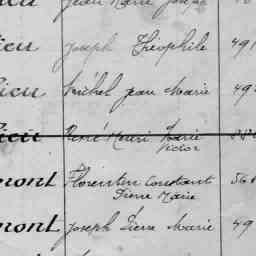 Jean Marie Joseph
ieu Joseph Théophile 491
ieu Michel Jean Marie 49
ieu René Henri Marie
Victor
mont Florentin Constant 568
Pierre Marie
mont Joseph Pierre Marie 49